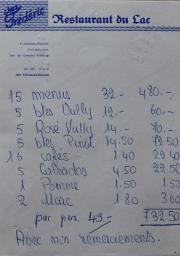 chez Frédéric Restaurant du Lac
15 menus 32.- 480.-
5 bles Vully 12.- 60.-
5 Rosé Vully 14.- 70.-
5 bles Pinot 14.50 72.50
16 cafés 1.40 22.40
5 Calvados 4.50 22.50
1 Pomme 1.50 1.50
2 Marc 1.80 3.60
par pers. 49.- 732.50
Avec nos remerciements.